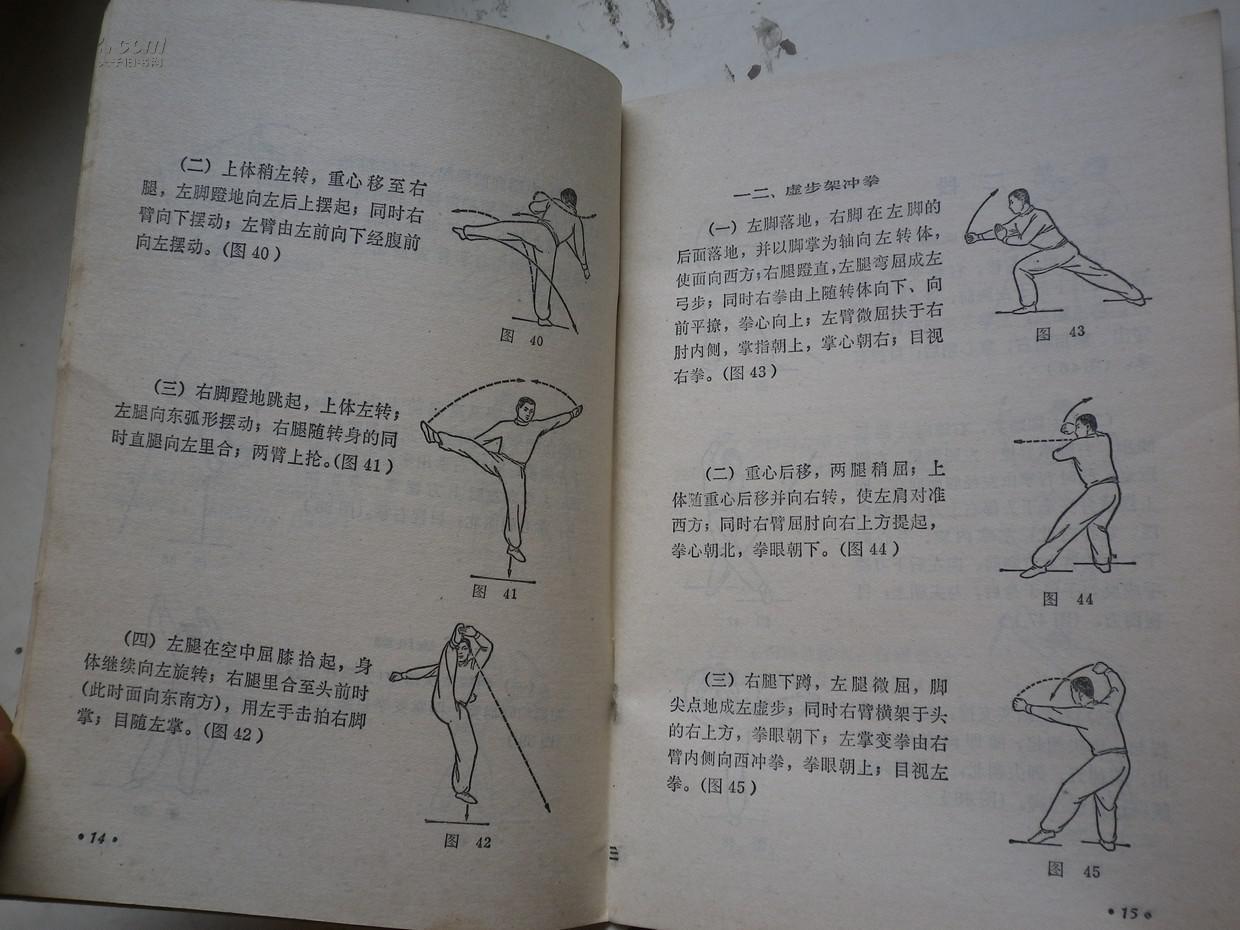 (二) 上体稍左转，重心移至右
腿，左脚蹬地向左后上摆起；同时右
臂向下摆动；左臂由左前向下经腹前
向左摆动。(图 40)
图 40
(三) 右脚蹬地跳起，上体左转；
左腿向东弧形摆动；右腿随转身的同
时直腿向左里合；两臂上抡。(图 41)
图 41
(四) 左腿在空中屈膝抬起，身
体继续向左旋转；右腿里合至头前时
(此时面向东南方)，用左手击拍右脚
掌；目随左掌。(图 42)
图 42
•14•
一二、虚步架冲拳
(一) 左脚落地，右脚在左脚的
后面落地，并以脚掌为轴向左转体，
使面向西方；右腿蹬直，左腿弯屈成左
弓步；同时右拳由上随转体向下、向
前平撩，拳心向上；左臂微屈扶于右
肘内侧，掌指朝上，掌心朝右；目视
右拳。(图 43)
图 43
(二) 重心后移，两腿稍屈；上
体随重心后移并向右转，使左肩对准
西方；同时右臂屈肘向右上方提起，
拳心朝北，拳眼朝下。(图 44)
图 44
(三) 右腿下蹲，左腿微屈，脚
尖点地成左虚步；同时右臂横架于头
的右上方，拳眼朝下；左掌变拳由右
臂内侧向西冲拳，拳眼朝上；目视左
拳。(图 45)
图 45
•15•